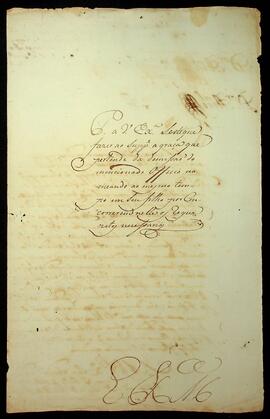 P. a V. Exª. Se digne
fazer ao Supp.e a graça que
pertende da demissão do
mencionado Officio no
meando ao mesmo tem
po em seu filho por con
correrem nelle os requi
zitos necessarios
E R M.ce